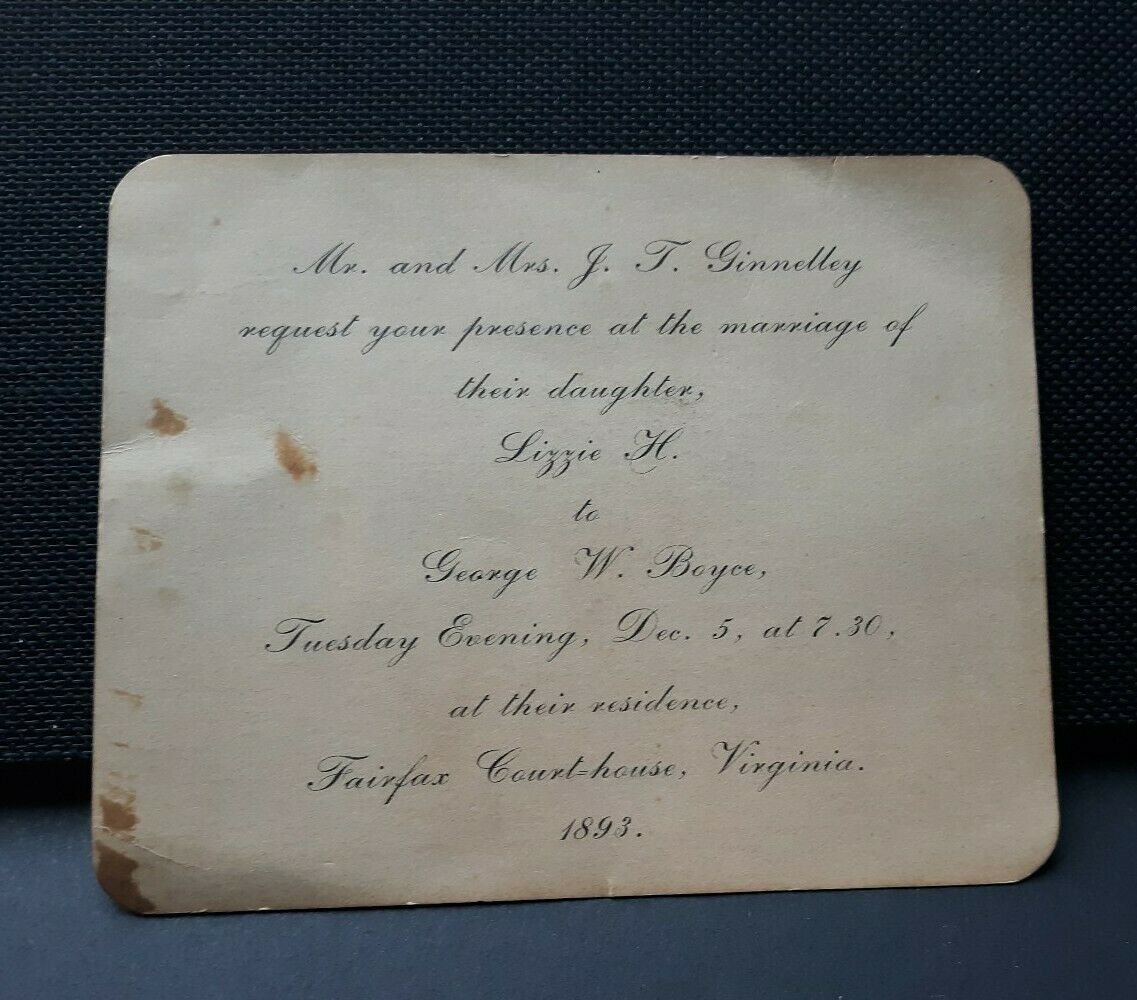 Mr. and Mrs. J. T. Ginnelley
request your presence at the marriage of
their daughter,
Lizzie H.
to
George W. Boyce,
Tuesday Evening, Dec. 5, at 7.30,
at their residence,
Fairfax Court=house, Virginia.
1893.